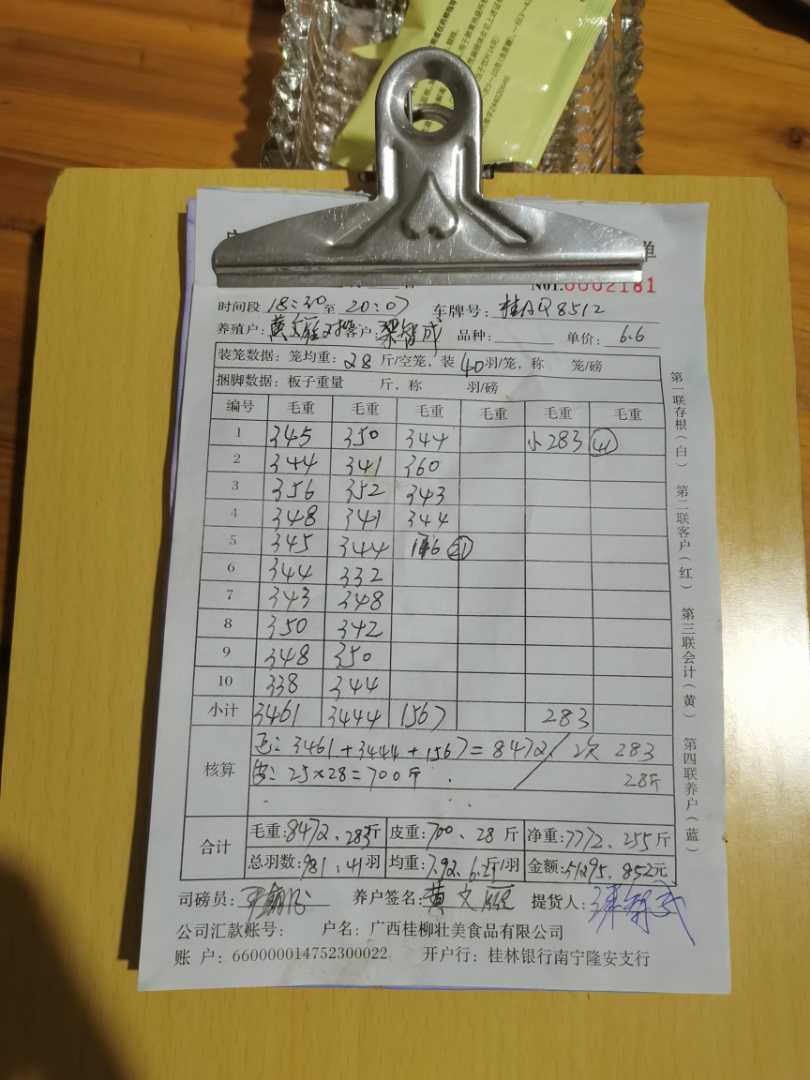 单
No1.0002181
时间段 18:30 至 20:07 车牌号: 桂AQ8512
养殖户: 黄文 客户: 梁智成 品种: 单价: 6.6
装笼数据: 笼均重: 28 斤/空笼, 装 40 羽/笼, 称 笼/磅
捆脚数据: 板子重量 斤, 称 羽/磅
编号 毛重 毛重 毛重 毛重 毛重 毛重
1 345 350 344 小283 (41)
2 344 341 360
3 356 352 343
4 348 341 344
5 345 344 176 (21)
6 344 332
7 343 348
8 350 342
9 348 350
10 338 344
小计 3461 3444 1567 283
核算 毛: 3461+3444+1567=8472 / 次 283
皮: 25×28=700斤 28斤
合计 毛重: 8472、283斤 皮重: 700、28 斤 净重: 7772、255斤
总羽数: 981、41羽 均重: 7.92、6.2斤/羽 金额: 51295.852元
司磅员: 养户签名: 黄文 提货人:
公司汇款账号: 户名: 广西桂柳壮美食品有限公司
账 户: 660000014752300022 开户行: 桂林银行南宁隆安支行
第一联存根(白) 第二联客户(红) 第三联会计(黄) 第四联养户(蓝)